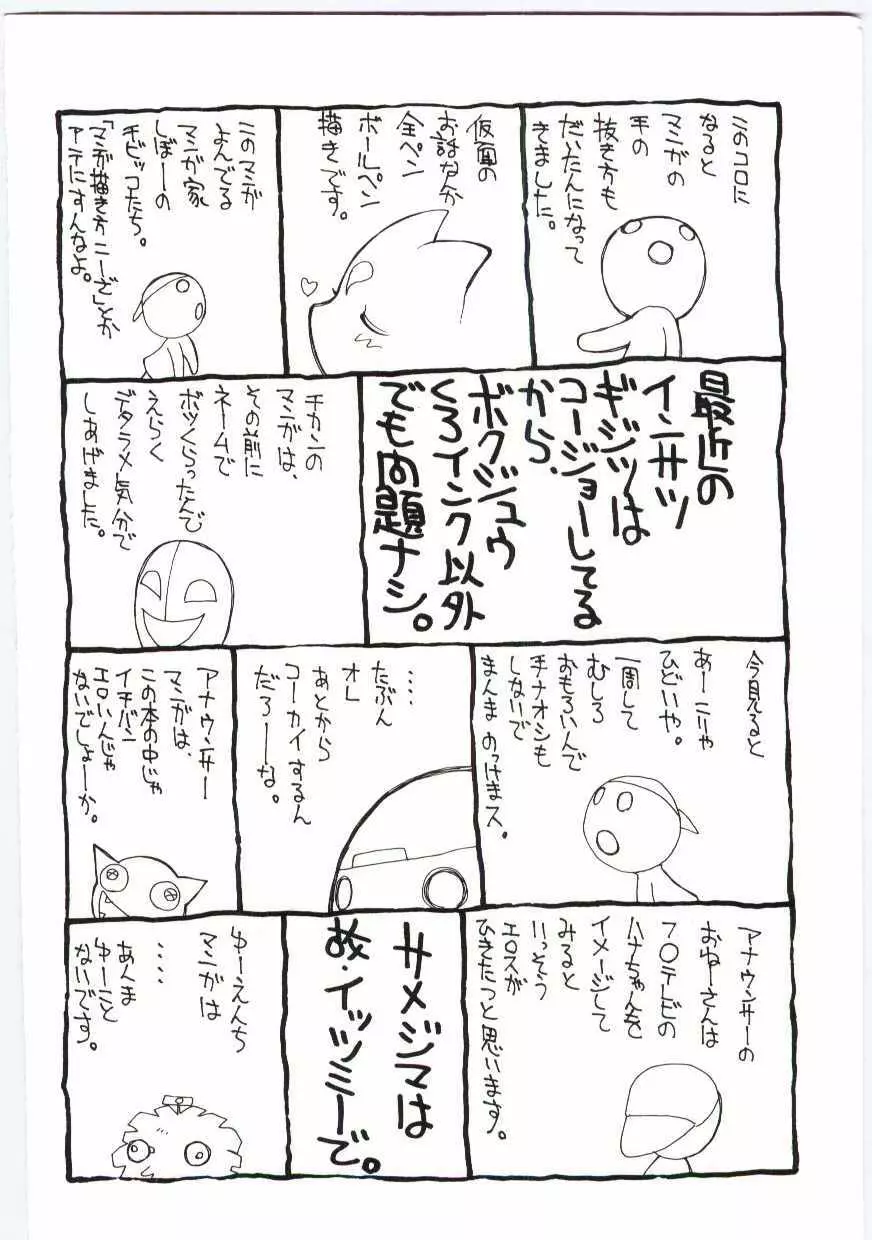 このコロに
なると
マンガの
手の
抜き方も
だいたんになって
きました。
仮面の
お話なんか
全ペン
ボールペン
描きです。
このマンガ
よんでる
マンガ家
しぼーの
チビッコたち。
「マンガ描き方こーざ」とか
アテにすんなよ。
最近の
インサツ
ギジツは
コージョーしてる
から、
ボクジュウ
くろインク以外
でも問題ナシ。
チカンの
マンガは、
その前に
ネームで
ボツくらったんで
えらく
デタラメ気分で
しあげました。
今見ると
あーこりゃ
ひどいや。
一周して
むしろ
おもろいんで
手ナオシも
しないで
まんま のっけまス。
‥‥
たぶん
オレ
あとから
コーカイするん
だろーな。
アナウンサー
マンガは、
この本の中じゃ
イチバン
エロいんじゃ
ないでしょーか。
アナウンサーの
おねーさんは
フ〇テレビの
ハナちゃんを
イメージして
みると
いっそう
エロスが
ひきたつと思います。
サメジマは
故・イッツミーで。
ゆーえんち
マンガは
‥‥
あんま
ゆーこと
ないです。